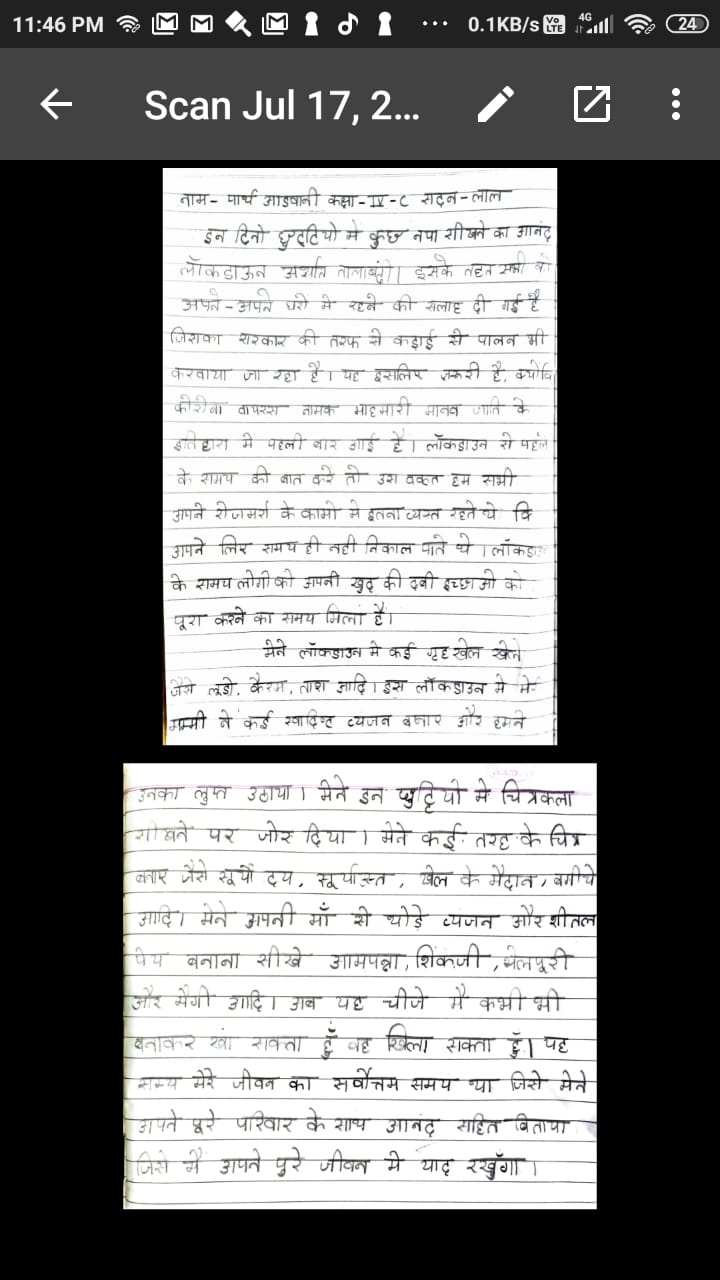 11:46 PM ... 0.1KB/s Vo LTE 4G 24
Scan Jul 17, 2...
नाम- पार्थ आडवानी कक्षा-IV-C सदन-लाल
इन दिनो छुट्टियो मे कुछ नया सीखने का आनंद
लॉकडाऊन अर्थात तालाबंदी। इसके तहत सभी को
अपने-अपने घरो मे रहने की सलाह दी गई है
जिसका सरकार की तरफ से कड़ाई से पालन भी
करवाया जा रहा है। यह इसलिए जरूरी है, क्योंकि
कोरोना वायरस नामक माहमारी मानव जाति के
इतिहास में पहली बार आई है। लॉकडाउन से पहले
के समय की बात करे तो उस वक्त हम सभी
अपने रोजमर्रा के कामो मे इतना व्यस्त रहते थे कि
अपने लिए समय ही नही निकाल पाते थे। लॉकडाउ
के समय लोगो को अपनी खुद की दबी इच्छाओ को
पूरा करने का समय मिला है।
मेने लॉकडाउन मे कई गृह खेल खेले
जैसे लूडो, कैरम, ताश आदि। इस लॉकडाउन मे मे
मम्मी ने कई स्वादिष्ट व्यजन बनाए और हमने
उनका लुप्त उठाया। मेने इन छुट्टियो मे चित्रकला
सीखने पर जोर दिया। मेने कई तरह के चित्र
बनाए जैसे सूर्यो दय, सूर्यास्त, खेल के मैदान, बगीचे
आदि। मेने अपनी माँ से थोड़े व्यजन और शीतल
पेय बनाना सीखे आमपन्ना, शिंकजी, भेलपूरी
और मैगी आदि। अब यह चीजे मै कभी भी
बनाकर खा सकता हूँ वह खिला सकता हूँ। यह
समय मेरे जीवन का सर्वोत्तम समय था जिसे मेने
अपने पूरे परिवार के साथ आनंद सहित बिताया
जिसे मैं अपने पुरे जीवन मे याद रखुँगा।